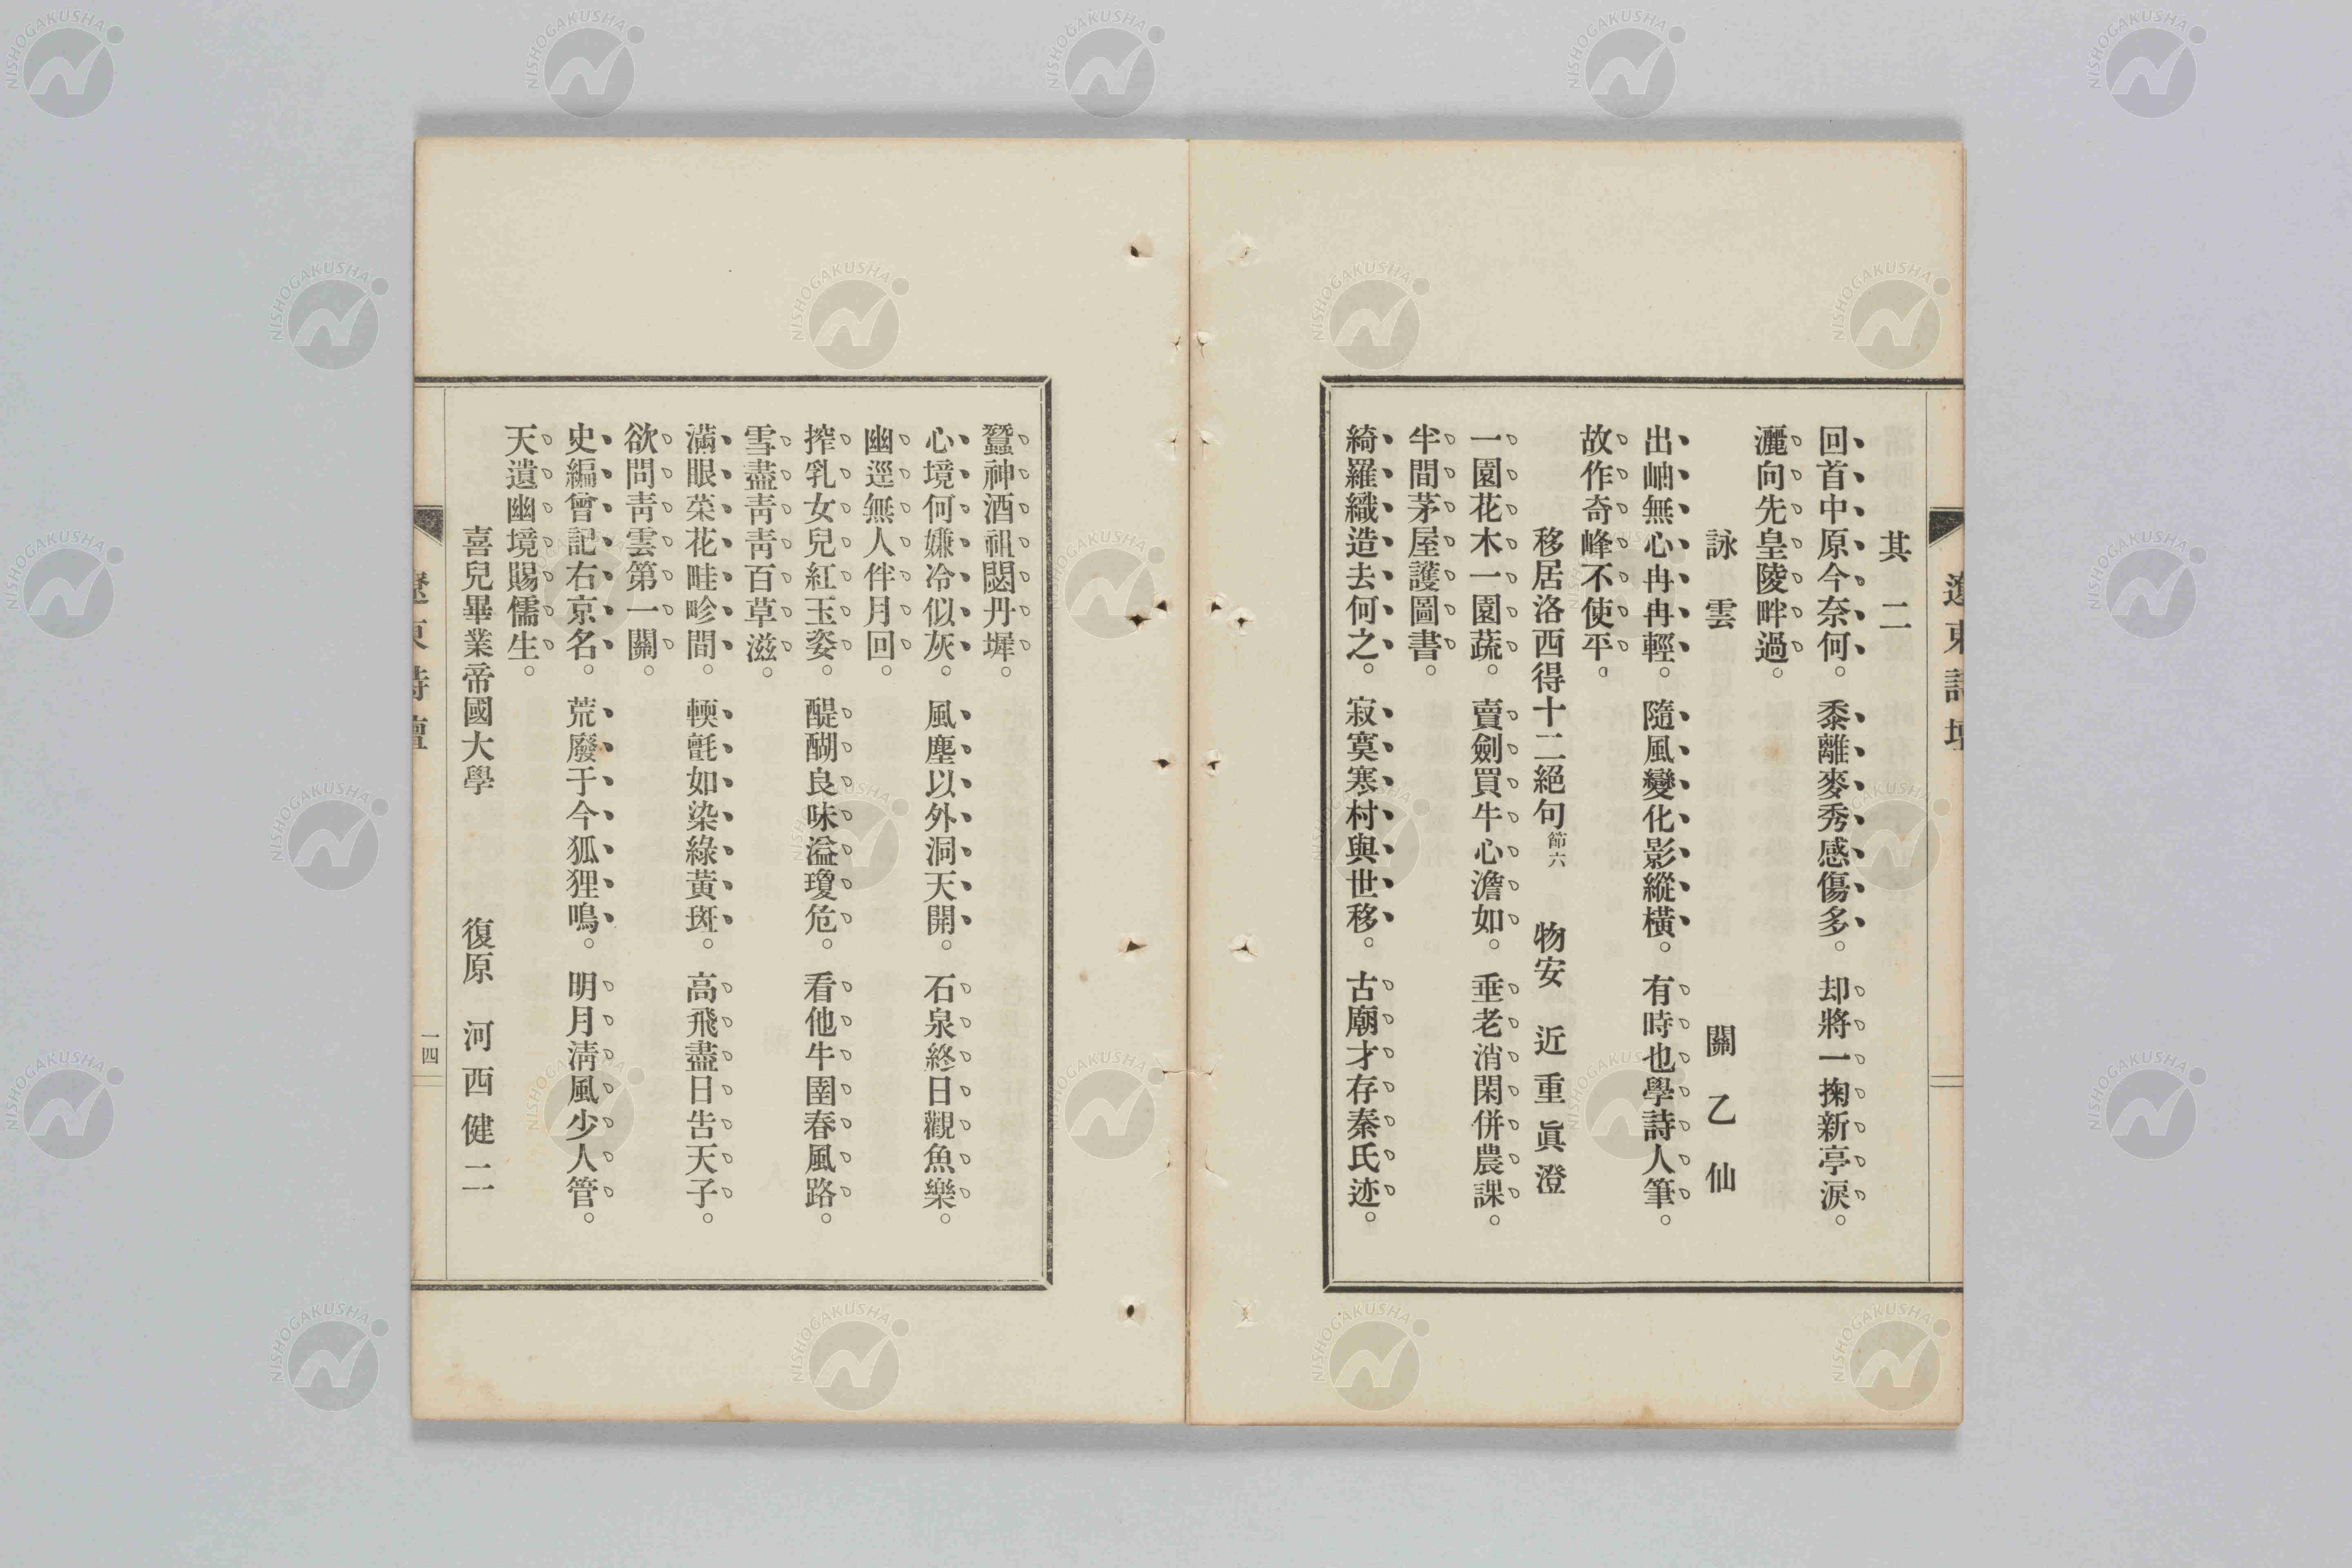 其二
回首中原今奈何。黍離麥秀感傷多。却將一掬新亭淚。
灑向先皇陵畔過。
詠雲 關乙仙
出岫無心冉冉輕。隨風變化影縱橫。有時也學詩人筆。
故作奇峰不使平。
移居洛西得十二絕句節六 物安 近重眞澄
一園花木一園蔬。賣劍買牛心澹如。垂老消閑併農課。
半間茅屋護圖書。
綺羅織造去何之。寂寞寒村與世移。古廟才存秦氏迹。
蠶神酒祖閟丹墀。
心境何嫌冷似灰。風塵以外洞天開。石泉終日觀魚樂。
幽逕無人伴月回。
搾乳女兒紅玉姿。醍醐良味溢瓊危。看他牛圉春風路。
雪盡靑靑百草滋。
滿眼菜花畦畛間。輭氈如染綠黃斑。高飛盡日吿天子。
欲問靑雲第一關。
史編曾記右京名。荒廢于今狐狸鳴。明月淸風少人管。
天遺幽境賜儒生。
喜兒畢業帝國大學 復原 河西健二
遼東詩壇
一四
NISHOGAKUSHA